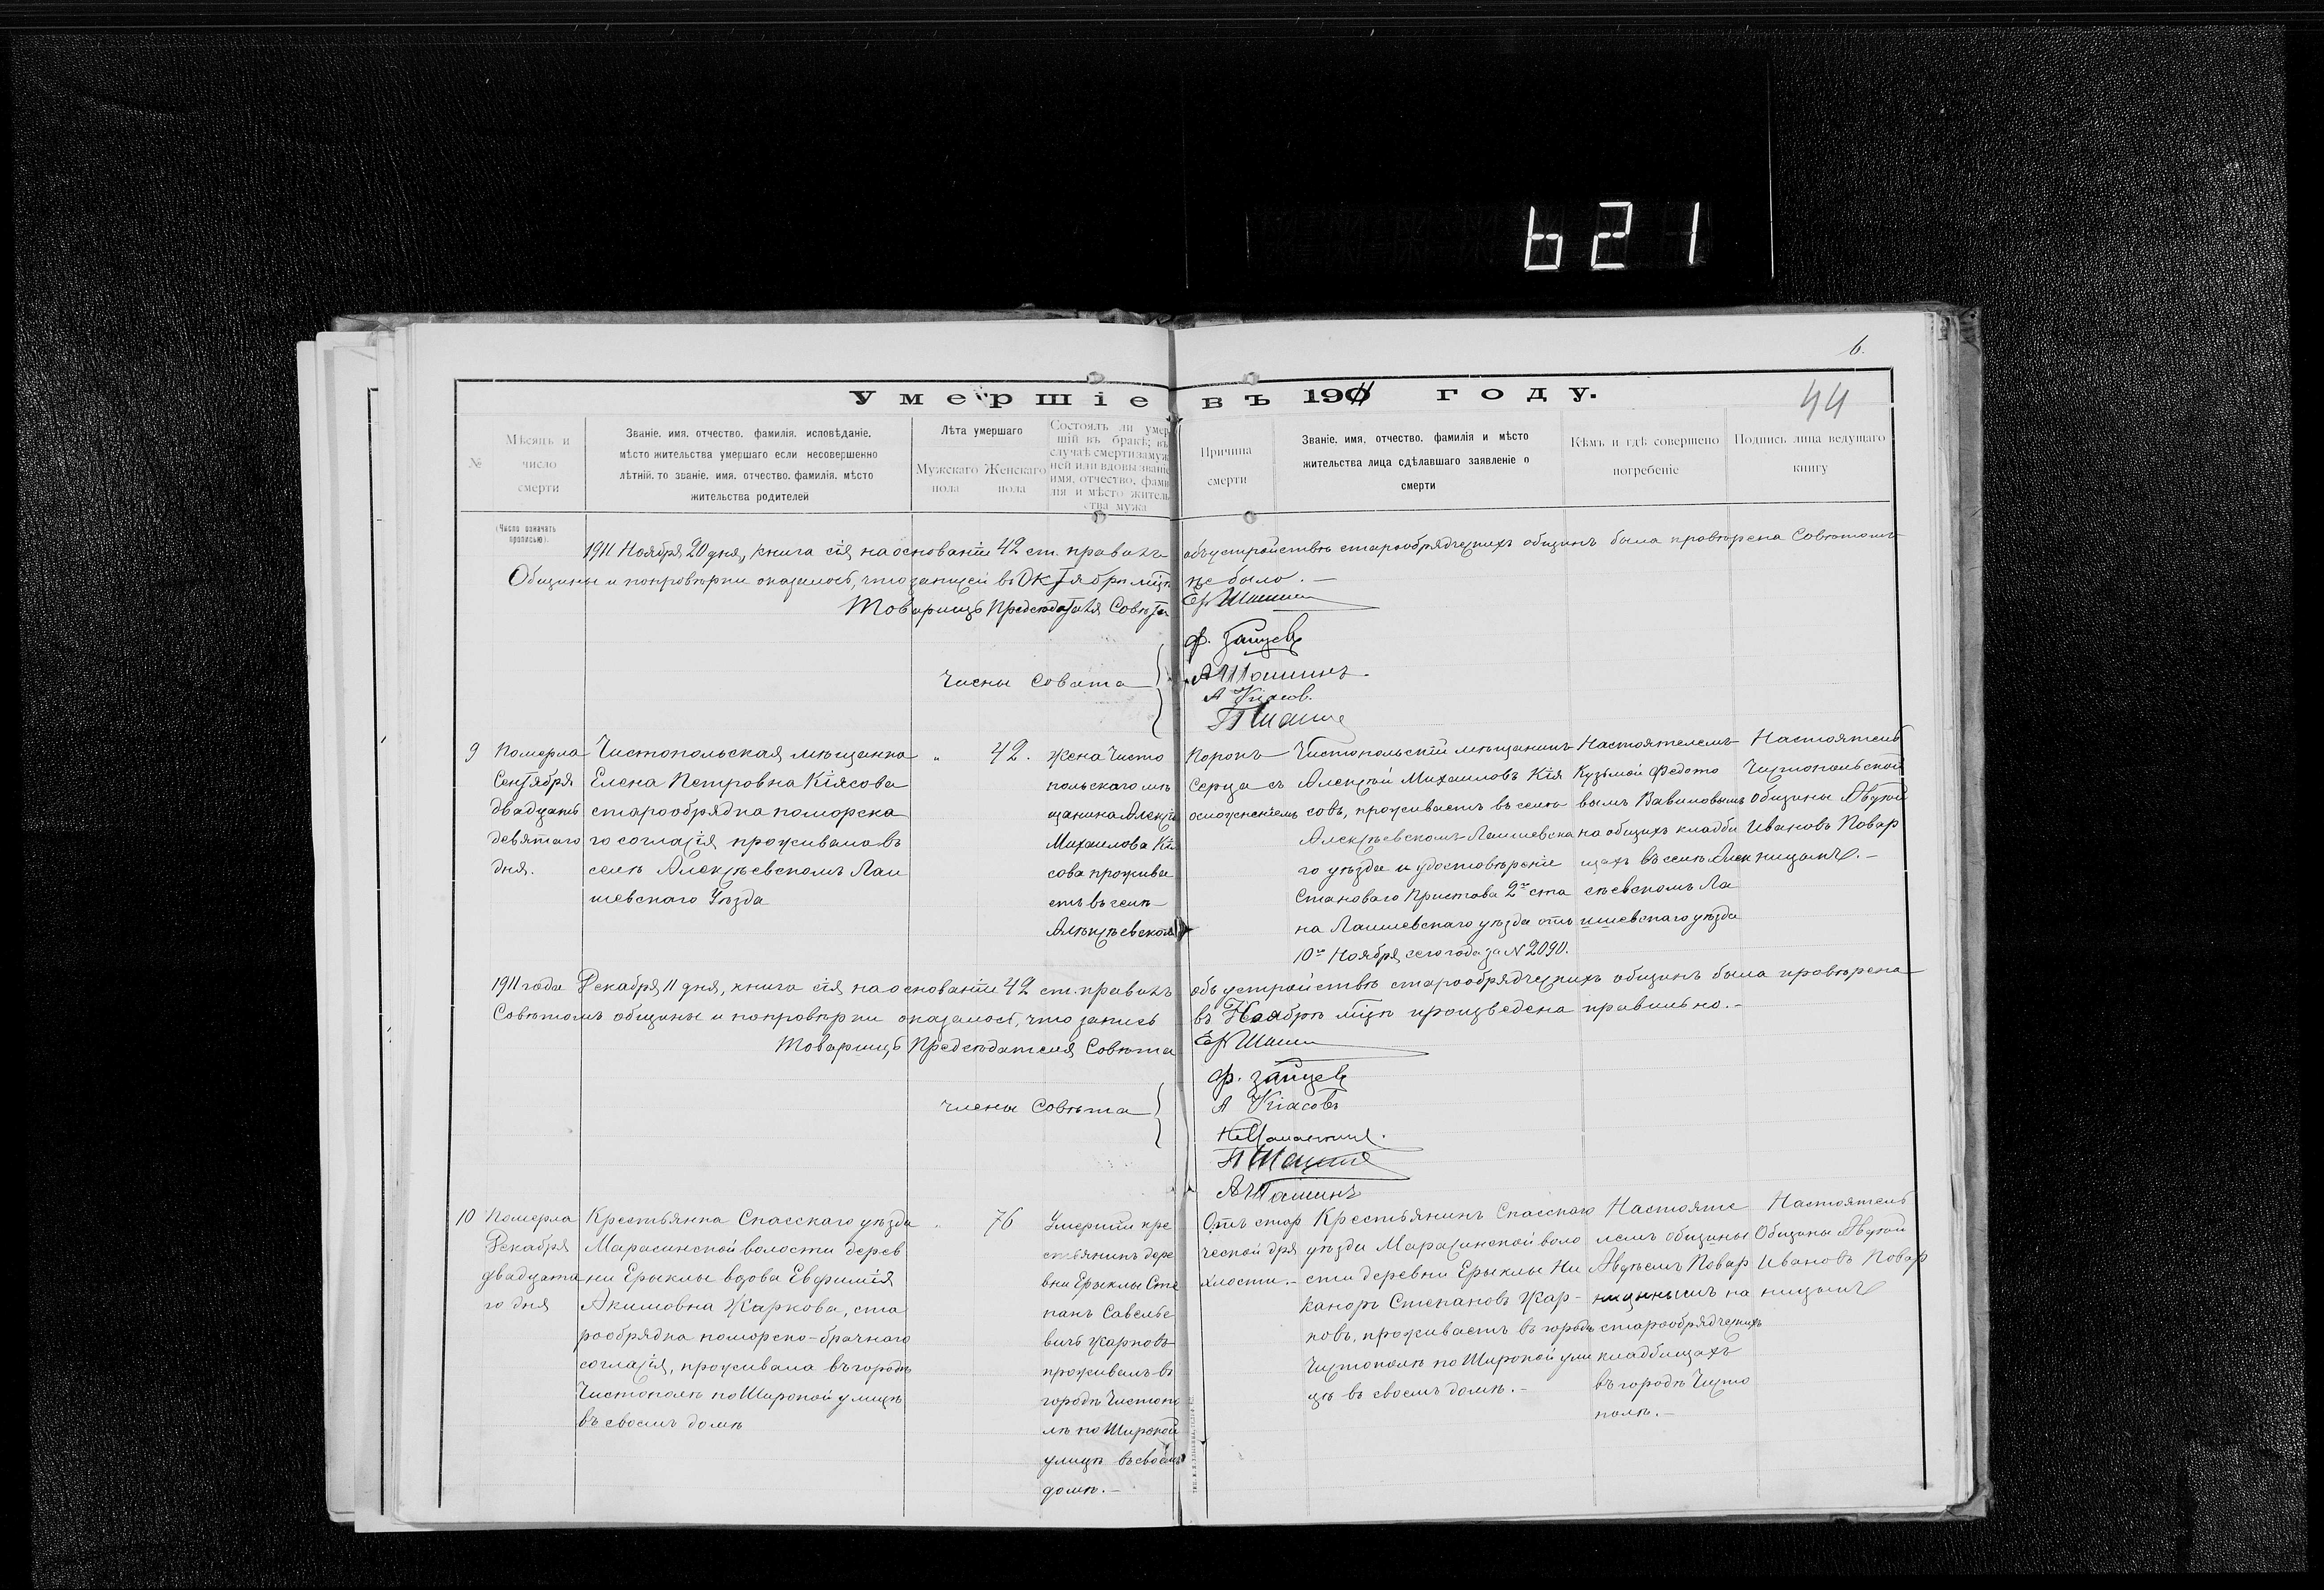 621
6.
44
Умершіе въ 1911 году.
№
Мѣсяцъ и
число
смерти
(Число означать
прописью).
Званіе, имя, отчество, фамилія, исповѣданіе,
мѣсто жительства умершаго если несовершенно
лѣтній, то званіе, имя, отчество, фамилія, мѣсто
жительства родителей
Лѣта умершаго
Мужскаго Женскаго
пола пола
Состоялъ ли умер
шій въ бракѣ; въ
случаѣ смерти замуж
ней или вдовы званіе
имя, отчество, фами
лія и мѣсто житель
ства мужа
Причина
смерти
Званіе, имя, отчество, фамилія и мѣсто
жительства лица сдѣлавшаго заявленіе о
смерти
Кѣмъ и гдѣ совершено
погребеніе
Подпись лица ведущаго
книгу
1911 Ноября 20 дня, книга сія на основаніи 42 ст. правилъ объ устройствѣ старообрядческихъ общинъ была провѣрена Совѣтомъ
Общины и по провѣрки оказалось, что записей въ Октябрѣ мцѣ не было.
Товарищъ Предсѣдателя Совѣта
Ф. Зайцевъ
Члены Совѣта
А Кіасов.
9
Померла
Сентября
двадцать
девятаго
дня.
Чистопольская мѣщанка
Елена Петровна Кіясова
старообрядка поморска
го согласія проживала въ
селѣ Алексѣевскомъ Лаи
шевскаго Уѣзда
"
42.
жена Чисто
польскаго мѣ
щанина Алексѣя
Михаилова Кія
сова прожива
етъ въ селѣ
Алексѣевском
Порокъ
Сердца съ
осложненіемъ
Чистопольскій мѣщанинъ
Алексѣй Михаиловъ Кія
совъ, проживаетъ въ селѣ
Алексѣевскомъ Лаишевска
го уѣзда и удостовѣреніе
Становаго Пристава 2го ста
на Лаишевскаго уѣзда отъ
10го Ноября сего года за N 2090.
Настоятелемъ
Кузьмой Федото
вымъ Вавиловымъ
на общихъ кладби
щахъ въ селѣ Алек
сѣевскомъ Ла
ишевскаго уѣзда
Настоятель
Чистопольской
общины Авдѣй
Ивановъ Повар
ницынъ.
1911 года Декабря 11 дня, книга сія на основаніи 42 ст. правилъ объ устройствѣ старообрядческихъ общинъ была провѣрена
Совѣтомъ общины и по провѣрки оказалось, что запись въ Ноябрѣ мцѣ произведена правильно.
Товарищъ Предсѣдателя Совѣта
Ф. Зайцевъ
члены Совѣта
А Кіасовъ
10
Померла
Декабря
двадцата
го дня
Крестьянка Спасскаго уѣзда
Марасинской волости дерев
ни Ерыклы вдова Евфимія
Акимовна Жаркова, ста
рообрядка поморско-брачнаго
согласія, проживала въ городѣ
Чистополѣ по Широкой улицѣ
въ своемъ домѣ
"
76
Умершій кре
стьянинъ дере
вни Ерыклы Сте
панъ Савелье
вичъ Жарковъ
проживалъ въ
городѣ Чистопо
лѣ по Широкой
улицѣ въ своемъ
домѣ.
Отъ стар
ческой дря
хлости.
Крестьянинъ Спасскаго
уѣзда Марасинской воло
сти деревни Ерыклы Ни
каноръ Степановъ Жар-
ковъ, проживаетъ въ городѣ
Чистополѣ по Широкой ули
цѣ въ своемъ домѣ.
Настояте
лемъ общины
Авдѣемъ Повар
ницынымъ на
старообрядческихъ
кладбищахъ
въ городѣ Чисто
полѣ.
Настоятель
Общины Авдѣй
Ивановъ Повар
ницынъ